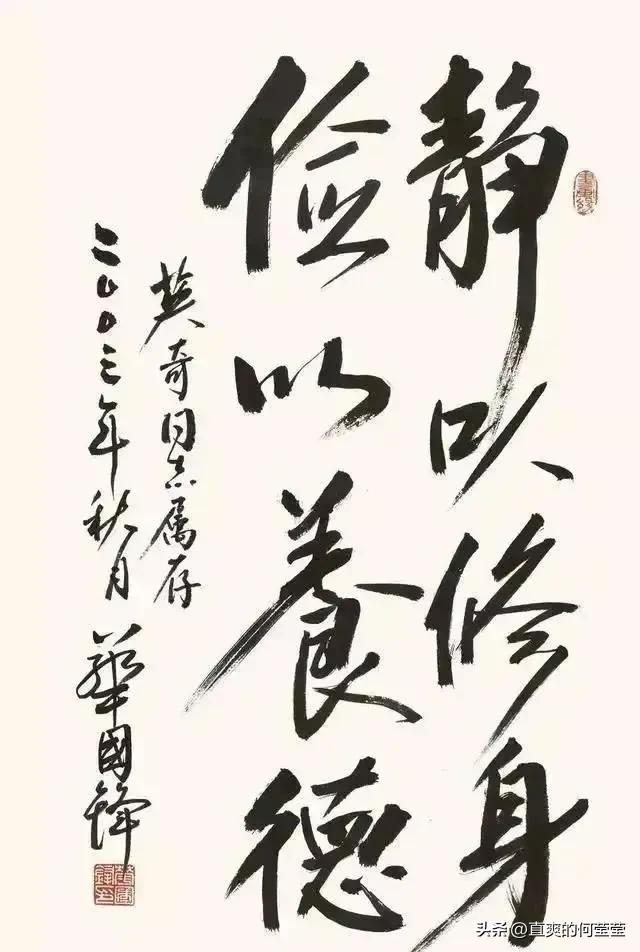 静以修身
儉以養德
英奇同志属存
二〇〇三年秋月
華國鋒
头条@直爽的何莹莹